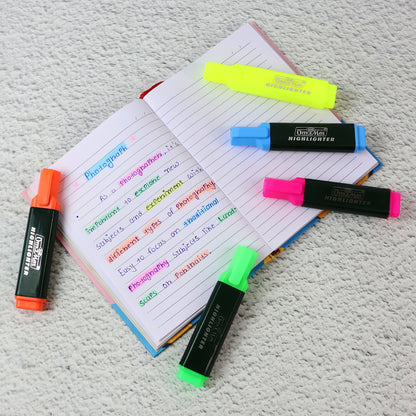 Photograph
As a photographer, it's
important to examine new with
subjects and experiment with
different types of Photography
Easy to focus on traditional
Photography subjects like Lands
scaps on Pontraits.
HIGHLIGHTER
HIGHLIGHTER
HIGHLIGHTER
HIGHLIGHTER
HIGHLIGHTER